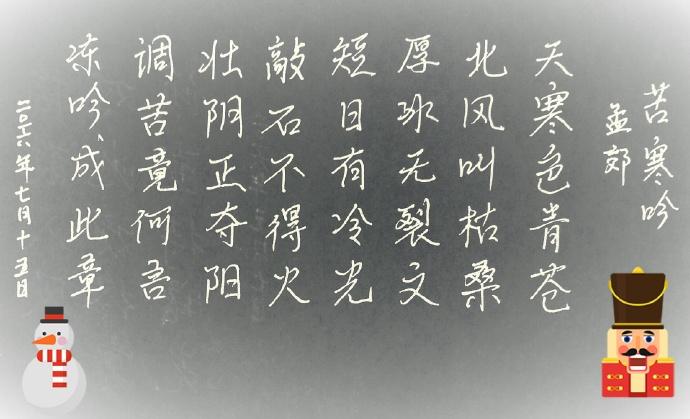 苦寒吟
孟郊
天寒色青苍
北风叫枯桑
厚冰无裂文
短日有冷光
敲石不得火
壮阴正夺阳
调苦竟何吾
冻吟、成此章
二〇一六年七月十五日